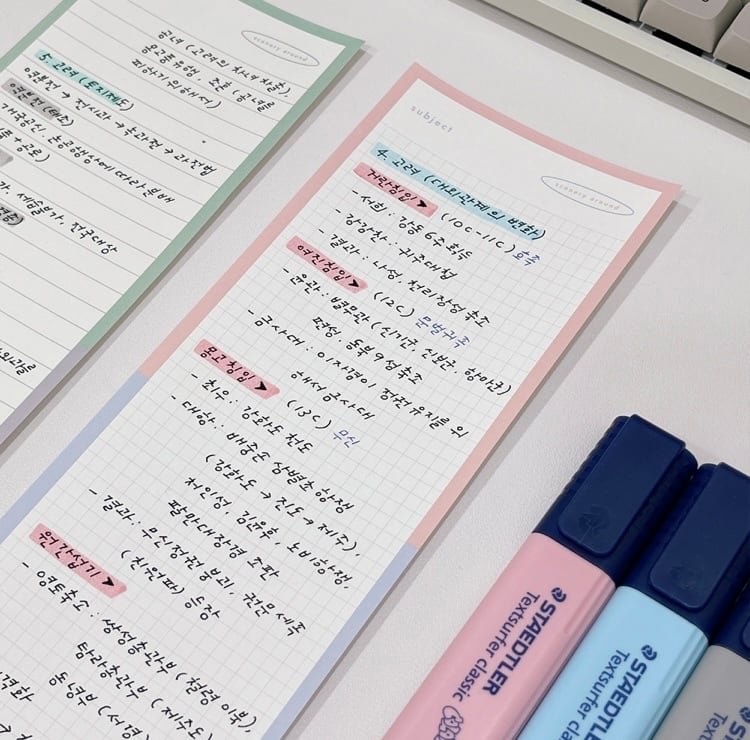 scenery around
피하기 위해서)
5. 고려 (토지제도)
역분전 → 전시과 → 녹과전 → 과전법
역분전 (태조)
개국공신, 논공행상에 따라 분배
전국대상
subject
scenery around
4. 고려 (대외관계의 변화)
거란침입 ➤ (10C-11C) 호족
- 서희 : 강동 6주 획득
- 강감찬 : 귀주대첩
- 결과 : 나성, 천리장성 축조
여진침입 ➤ (12C) 문벌귀족
- 윤관 : 별무반 (신기군, 신보군, 항마군)
편성, 동북 9성 축조
- 금사대 : 이자겸이 정권 유지를 위
해서 금 사대
몽고침입 ➤ (13C) 무신
- 최우 : 강화도 천도
- 대항 : 배중손 삼별초 항쟁
(강화도 → 진도 → 제주),
처인성, 김윤후, 노비항쟁,
팔만대장경 조판
- 결과 : 무신정권 붕괴, 권문세족
(친원파) 등장
원 간섭기 ➤
- 영토축소 : 쌍성총관부 (철령 이북),
탐라총관부 (제주도)
동녕부 (서경)
STAEDTLER
Textsurfer classic
STAEDTLER
Textsurfer clas